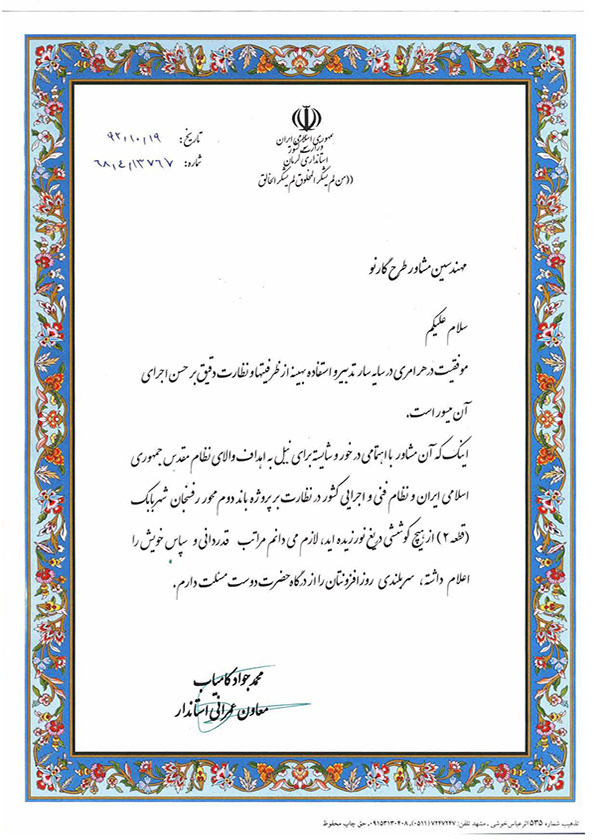 جمهوری اسلامی ایران
وزارت کشور
استانداری کرمان
((من لم یشکر المخلوق لم یشکر الخالق
تاریخ: ۹۲،۱۰،۱۹
شماره: ۶۸،۴،۱۳۷۶۷
مهندسین مشاور طرح کارنو
سلام علیکم
موفقیت در هر امری در سایه سار تدبیر و استفاده بهینه از ظرفیتها و نظارت دقیق بر حسن اجرای
آن میسور است.
اینک که آن مشاور با اهتمامی در خور و شایسته برای نیل به اهداف والای نظام مقدس جمهوری
اسلامی ایران و نظام فنی و اجرایی کشور در نظارت بر پروژه باند دوم محور رفسنجان شهربابک
(قطعه ۲) از هیچ کوششی دریغ نورزیده اید، لازم می دانم مراتب قدردانی و سپاس خویش را
اعلام داشته، سربلندی روزافزونتان را از درگاه حضرت دوست مسئلت دارم.
محمد جواد کامیاب
معاون عمرانی استاندار
تذهیب شماره ۵۳۵ اثر عباس خوشی ـ مشهد تلفن: ۷۲۴۷۲۴۷ (۰۵۱۱)ـ ۰۹۱۵۳۱۳۰۴۰۸ـ حق چاپ محفوظ